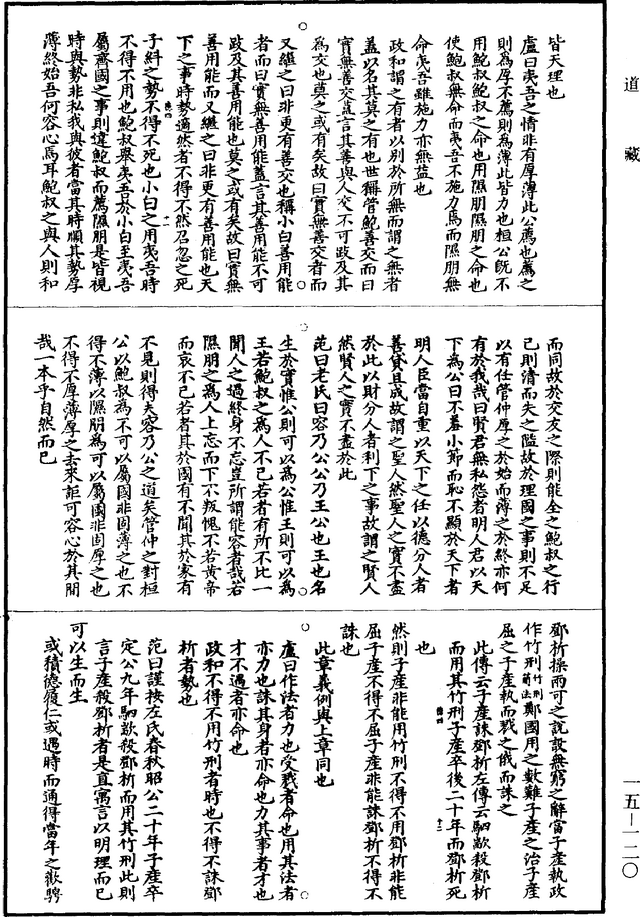 道藏
皆天理也
盧曰夷吾之情非有厚薄此公薦也薦之
則為厚不薦則為薄此皆力也桓公既不
用鮑叔鮑叔之命也用隰朋隰朋之命也
使鮑叔無命而夷吾不施力焉而隰朋無
命夷吾雖施力亦無益也
政和謂之有者以別於所無而謂之無者
蓋以名其莫之有也世稱管鮑善交而曰
實無善交蓋言其善與人交不可跂及其
為交也莫之或有矣故曰實無善交者而
又繼之曰非更有善交也稱小白善用能
者而曰實無善用能蓋言其善用能不可
跂及其善用能也莫之或有矣故曰實無
善用能而又繼之曰非更有善用能也天
下之事時勢適然者不得不然召忽之死
子糾之勢不得不死也小白之用夷吾時
不得不用也鮑叔舉夷吾於小白至夷吾
屬齊國之事則違鮑叔而薦隰朋是皆視
時與勢非私我與彼者當其時順其勢厚
薄終始吾何容心焉耳鮑叔之與人則和
而同故於交友之際則能全之鮑叔之行
己則清而失之隘故於理國之事則不足
以有任管仲厚之於始而薄之於終亦何
有於我哉曰賢君無私怨者明人君以天
下為公曰不羞小節而恥不顯於天下者
明人臣當自重以天下之任以德分人者
善貸且成故謂之聖人然聖人之實不盡
於此以財分人者利下之事故謂之賢人
然賢人之實不盡於此
范曰老氏曰容乃公公乃王公也王也名
生於實惟公則可以為公惟王則可以為
王若鮑叔之為人不已若者有所不比一
聞人之過終身不忘豈所謂能容者哉若
隰朋之為人上忘而下不叛愧不若黃帝
而哀不己若者其於國有不聞其於家有
不見則得夫容乃公之道矣管仲之對桓
公以鮑叔為不可以屬國非固薄之也不
得不薄以隰朋為可以屬國非固厚之也
不得不厚薄厚之去來詎可容心於其間
哉一本乎自然而已
鄧析操兩可之說設無窮之辭當子產執政
作竹刑竹刑簡法鄭國用之數難子產之治子產
屈之子產執而戮之俄而誅之
此傳云子產誅鄧析左傳云駟歂殺鄧析
而用其竹刑子產卒後二十年而鄧析死
也
然則子產非能用竹刑不得不用鄧析非能
屈子產不得不屈子產非能誅鄧析不得不
誅也
此章義例與上章同也
盧曰作法者力也受戮者命也用其法者
亦力也誅其身者亦命也力其事者才也
才不遇者亦命也
政和不得不用竹刑者時也不得不誅鄧
析者勢也
范曰謹按左氏春秋昭公二十年子產卒
定公九年駟歂殺鄧析而用其竹刑此則
言子產殺鄧析者是直寓言以明理而已
可以生而生
或積德履仁或遇時而通得當年之歡騁
一五―一二〇